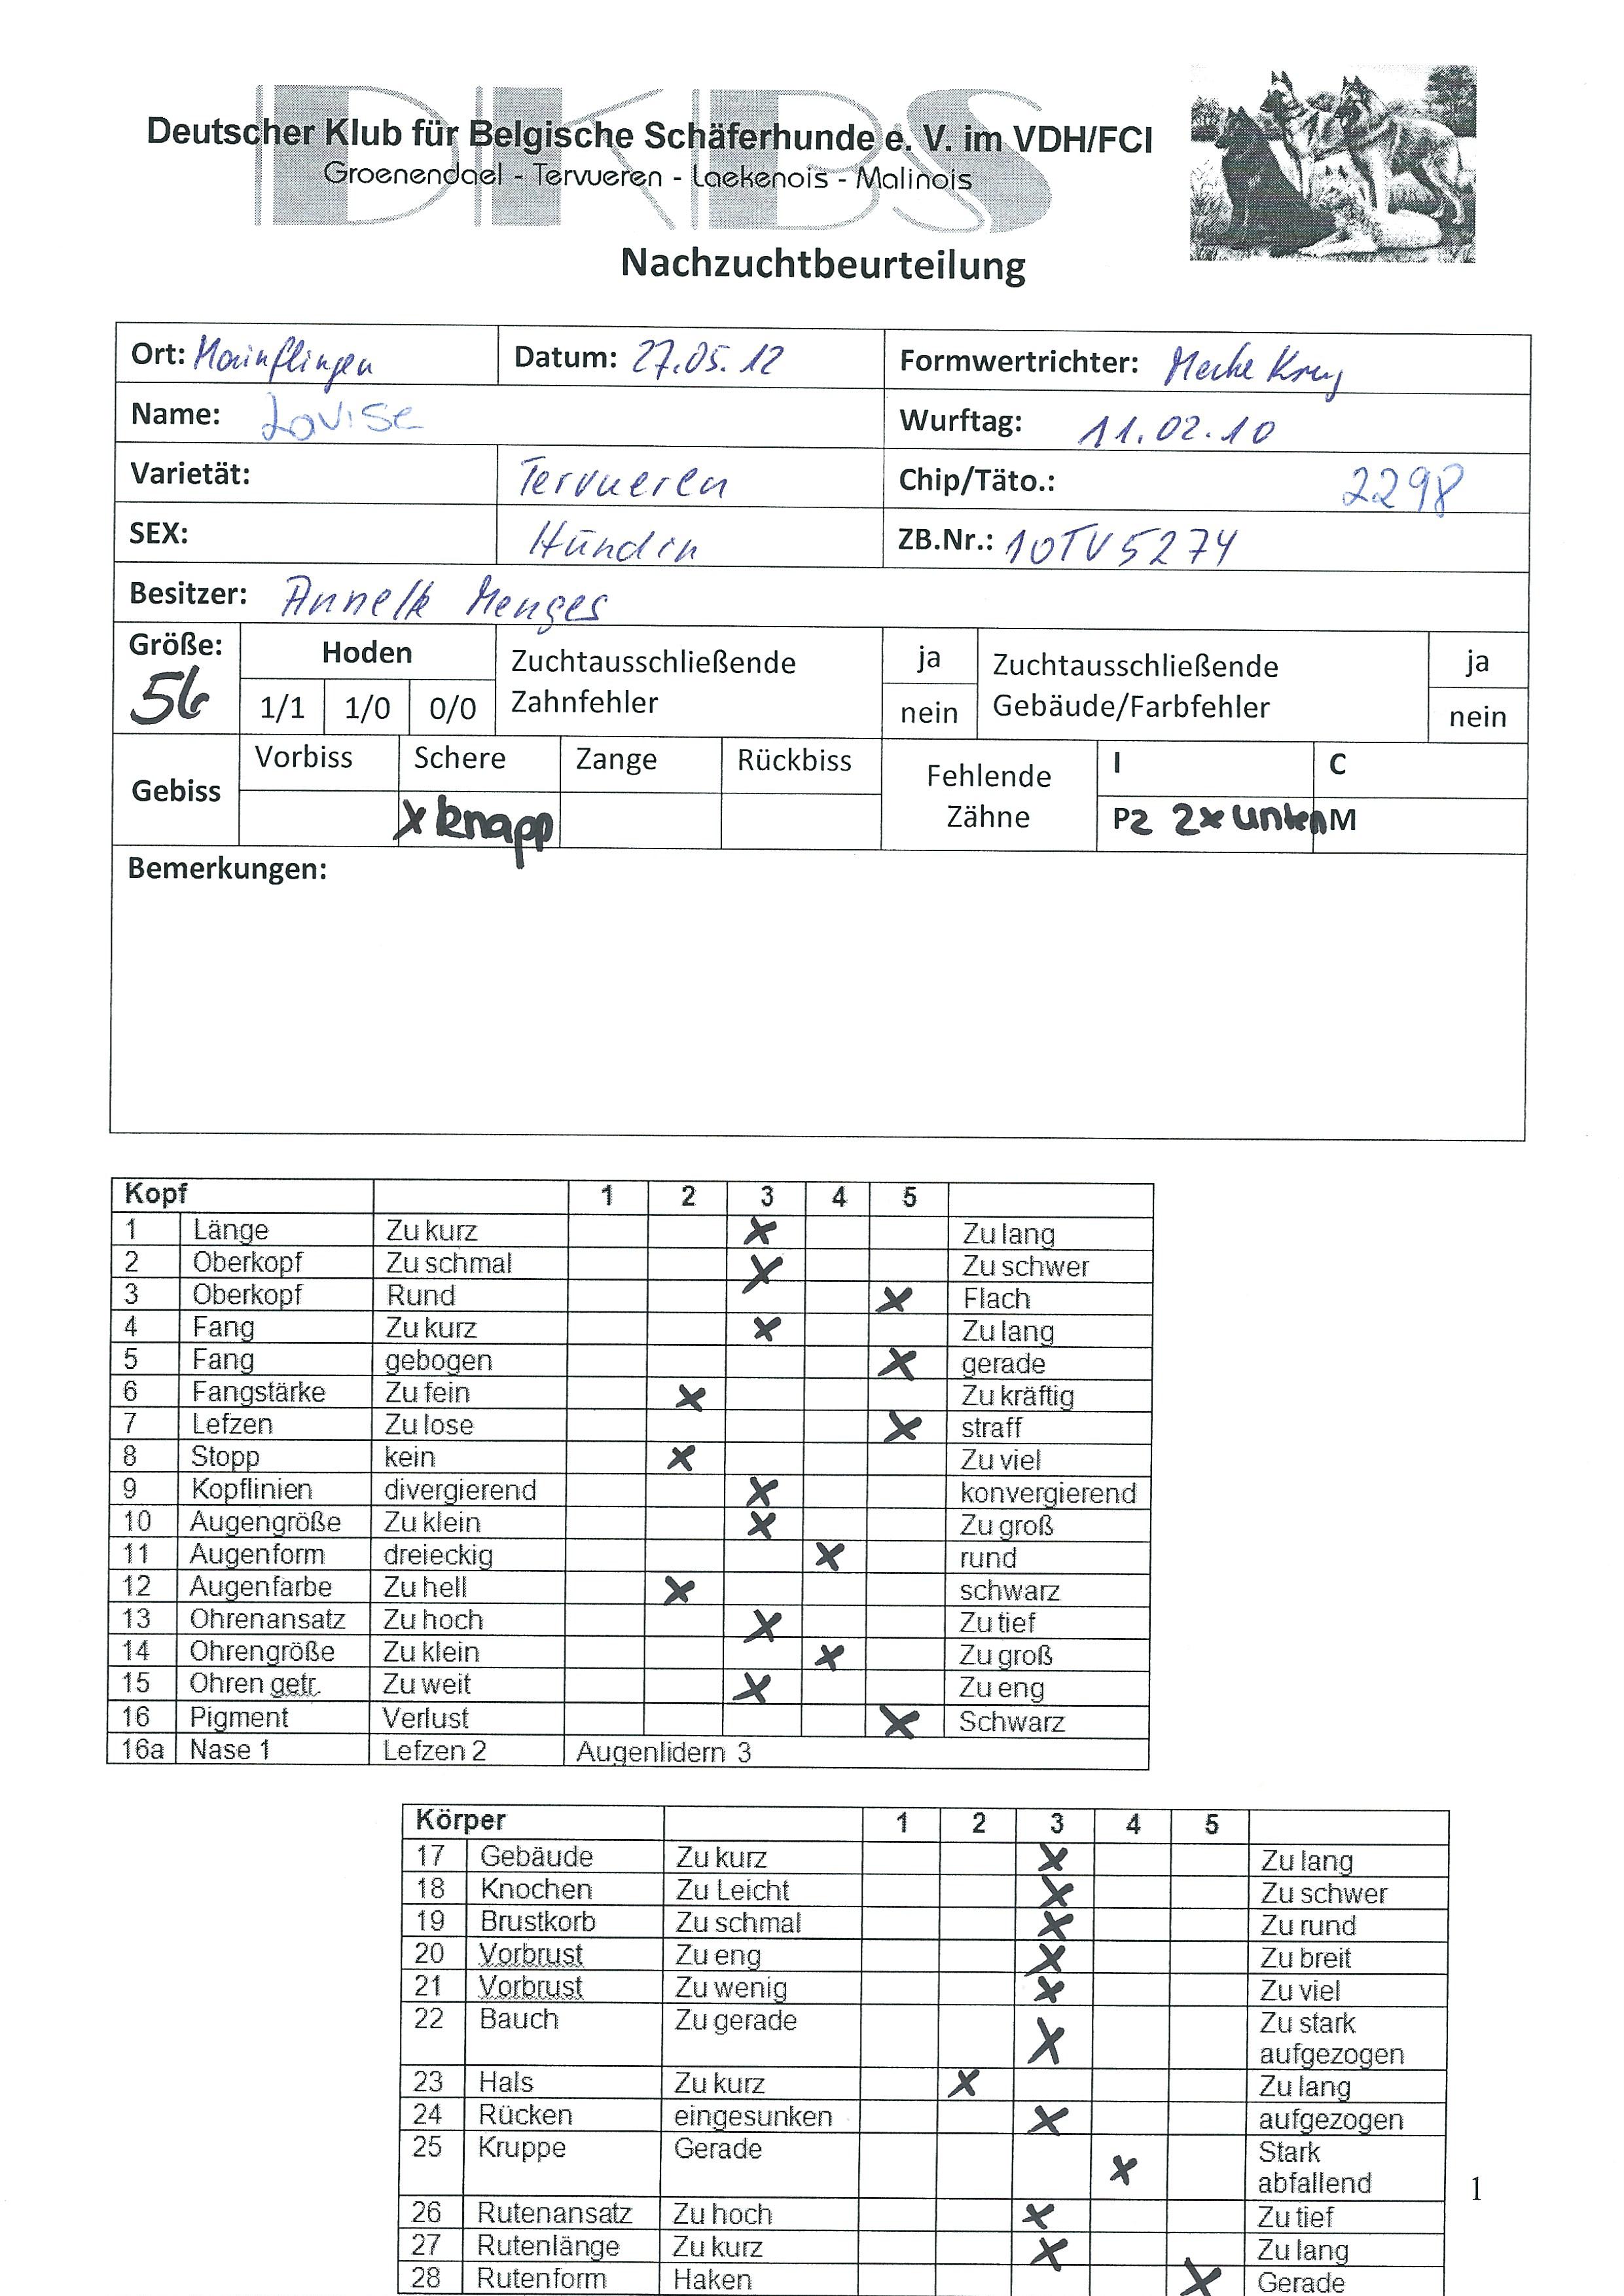 DKBS
Deutscher Klub für Belgische Schäferhunde e. V. im VDH/FCI
Groenendael - Tervueren - Laekenois - Malinois
Nachzuchtbeurteilung
Ort: Mainflingen Datum: 27.05.12 Formwertrichter:
Name: Lovise Wurftag: 11.02.10
Varietät: Tervueren Chip/Täto.: 2298
SEX: Hündin ZB.Nr.: 10TV5274
Besitzer: Menges
Größe: 56 Hoden 1/1 1/0 0/0 Zuchtausschließende Zahnfehler ja nein Zuchtausschließende Gebäude/Farbfehler ja nein
Gebiss Vorbiss Schere Zange Rückbiss Fehlende Zähne I C
X knapp P2 2x unten M
Bemerkungen:
Kopf 1 2 3 4 5
1 Länge Zu kurz X Zu lang
2 Oberkopf Zu schmal X Zu schwer
3 Oberkopf Rund X Flach
4 Fang Zu kurz X Zu lang
5 Fang gebogen X gerade
6 Fangstärke Zu fein X Zu kräftig
7 Lefzen Zu lose X straff
8 Stopp kein X Zu viel
9 Kopflinien divergierend X konvergierend
10 Augengröße Zu klein X Zu groß
11 Augenform dreieckig X rund
12 Augenfarbe Zu hell X schwarz
13 Ohrenansatz Zu hoch X Zu tief
14 Ohrengröße Zu klein X Zu groß
15 Ohren getr. Zu weit X Zu eng
16 Pigment Verlust X Schwarz
16a Nase 1 Lefzen 2 Augenlidern 3
Körper 1 2 3 4 5
17 Gebäude Zu kurz X Zu lang
18 Knochen Zu Leicht X Zu schwer
19 Brustkorb Zu schmal X Zu rund
20 Vorbrust Zu eng X Zu breit
21 Vorbrust Zu wenig X Zu viel
22 Bauch Zu gerade X Zu stark
aufgezogen
23 Hals Zu kurz X Zu lang
24 Rücken eingesunken X aufgezogen
25 Kruppe Gerade X Stark
abfallend
1
26 Rutenansatz Zu hoch X Zu tief
27 Rutenlänge Zu kurz X Zu lang
28 Rutenform Haken X Gerade